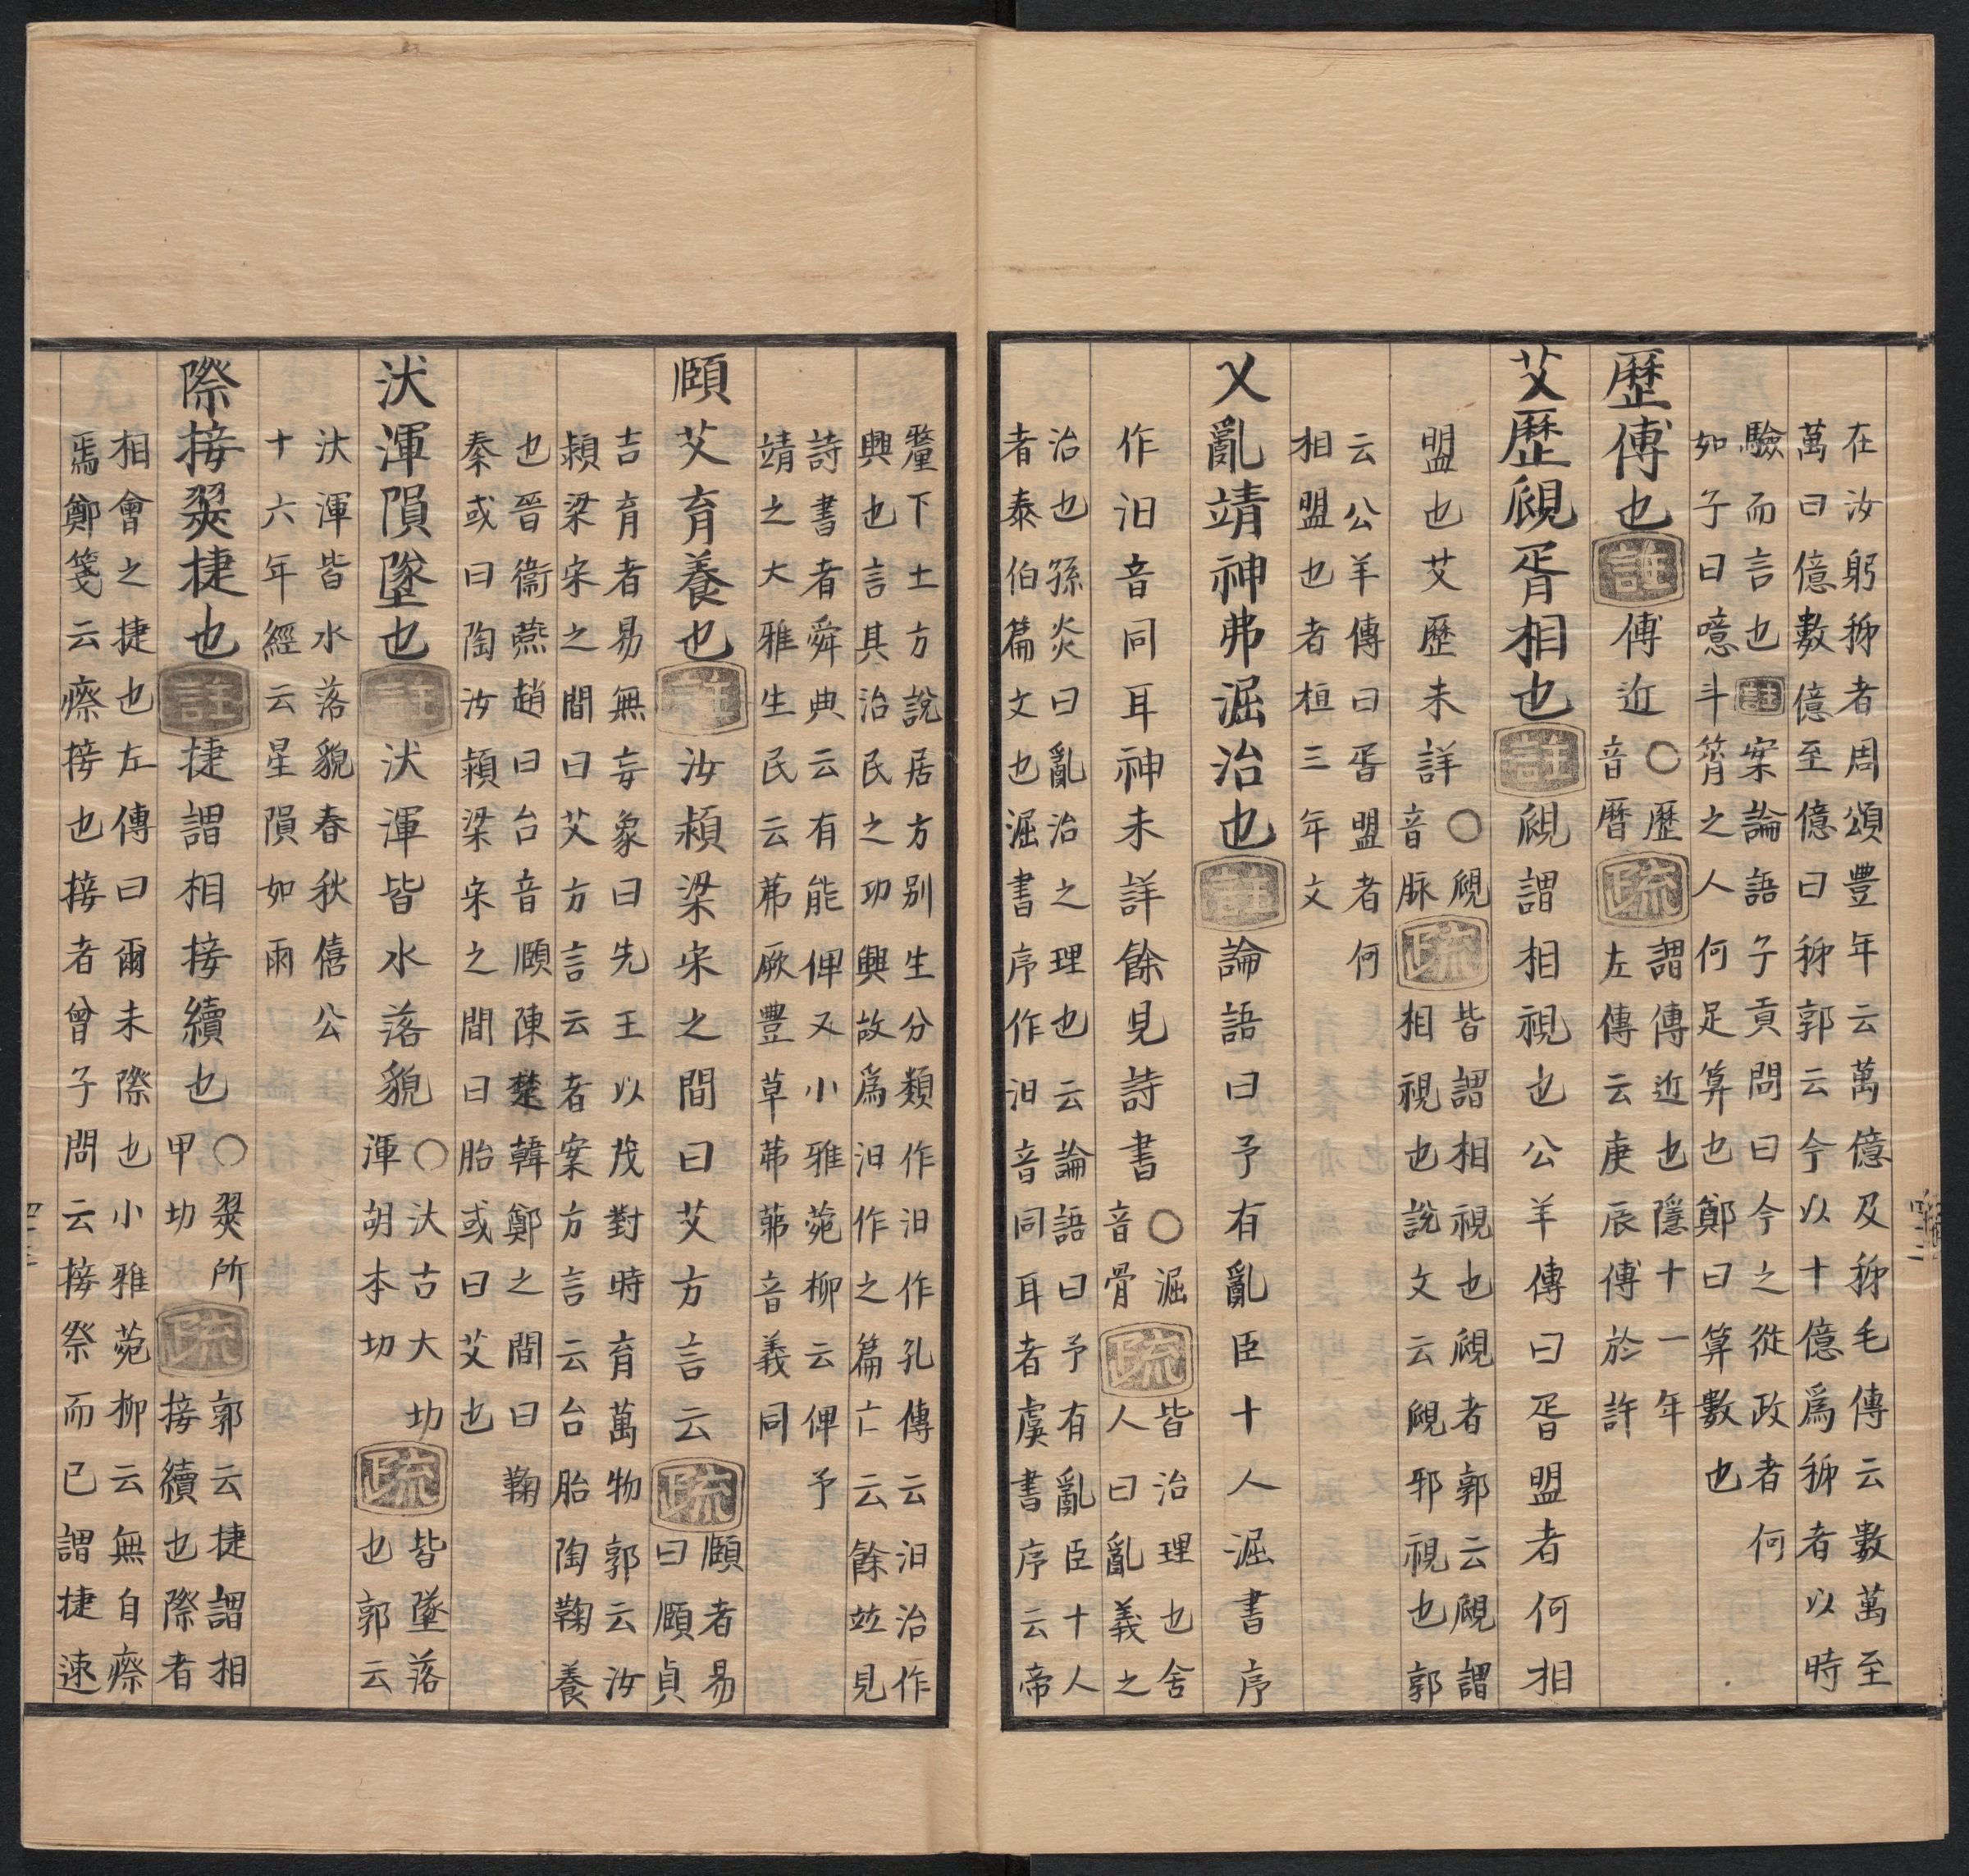 在汝躬秭者周頌豐年云萬億及秭毛傳云數萬至
萬曰億數億至億曰秭郭云今以十億爲秭者以時
驗而言也註案論語子貢問曰今之從政者何
如子曰噫斗筲之人何足算也鄭曰算數也
歷傅也註傅近○歷音曆疏謂傅近也隱十一年左傳云庚辰傅於許
艾歷覛胥相也註覛謂相視也公羊傳曰胥盟者何相
盟也艾歷未詳○覛音脉疏皆謂相視也覛者郭云覛謂相視也說文云覛邪視也郭
云公羊傳曰胥盟者何
相盟也者桓三年文
乂亂靖神弗淈治也註論語曰予有亂臣十人淈書序
作汨音同耳神未詳餘見詩書○淈音骨疏皆治理也舍人曰亂義之
治也孫炎曰亂治之理也云論語曰予有亂臣十人
者泰伯篇文也淈書序作汨音同耳者虞書序云帝
釐下土方說居方別生分類作汨作孔傳云汨治作
興也言其治民之功興故爲汨作之篇亡云餘竝見
詩書者舜典云有能俾乂小雅菀柳云俾予
靖之大雅生民云茀厥豐草茀茀音義同
頤艾育養也註汝潁梁宋之間曰艾方言云疏頤者易曰頤貞
吉育者易無妄象曰先王以茂對時育萬物郭云汝
潁梁宋之間曰艾方言云者案方言云台胎陶鞠養
也晉衞燕趙曰台音頤陳楚韓鄭之間曰鞠
秦或曰陶汝潁梁宋之間曰胎或曰艾也
汱渾隕墜也註汱渾皆水落貌○汱古犬切渾胡本切疏皆墜落也郭云
汱渾皆水落貌春秋僖公
十六年經云星隕如雨
際接翜捷也註捷謂相接續也○翜所甲切疏郭云捷謂相接續也際者
相會之捷也左傳曰爾未際也小雅菀柳云無自瘵
焉鄭箋云瘵接也接者曾子問云接祭而已謂捷速